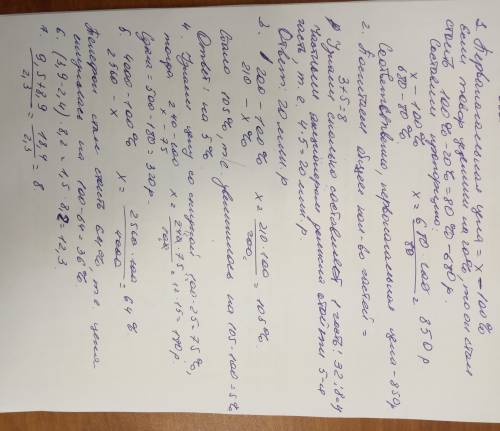 1. Первоначальная цена = x - 100%
если товар уценили на 20%, то он стал
стоить 100% - 20% = 80% - 680 р.
Составим пропорцию:
x - 100%
680 - 80%
x = 680 · 100 / 80 = 850 р
Соответственно, первоначальная цена - 850р
2. Посчитаем общее кол-во частей =
3+5=8
Узнаем сколько составляет 1 часть: 32:8=4
частными акционерам должна отойти 5-я
часть, т.е. 4·5=20 млн р.
Ответ: 20 млн р
3. 200 - 100%
210 - x%
x = 210·100 / 200 = 105%.
Стало 105%, т.е. увеличилась на 105-100=5%
Ответ: на 5%
4. Узнаем цену со скидкой 100-25=75%,
тогда 240-100
x - 75
x = 240·75 / 100 = 12·15=180р.
Сдача = 500-180 = 320р
5. 4000 - 100%
2560 - x
x = 2560·100 / 4000 = 64%
Теперь стал стоить 64%, т.е. цена
снизилась на 100-64=36%
6. (3,9-2,4)·8,2 = 1,5·8,2=12,3.
7. 9,5+8,9 / 2,3 = 18,4 / 2,3 = 8